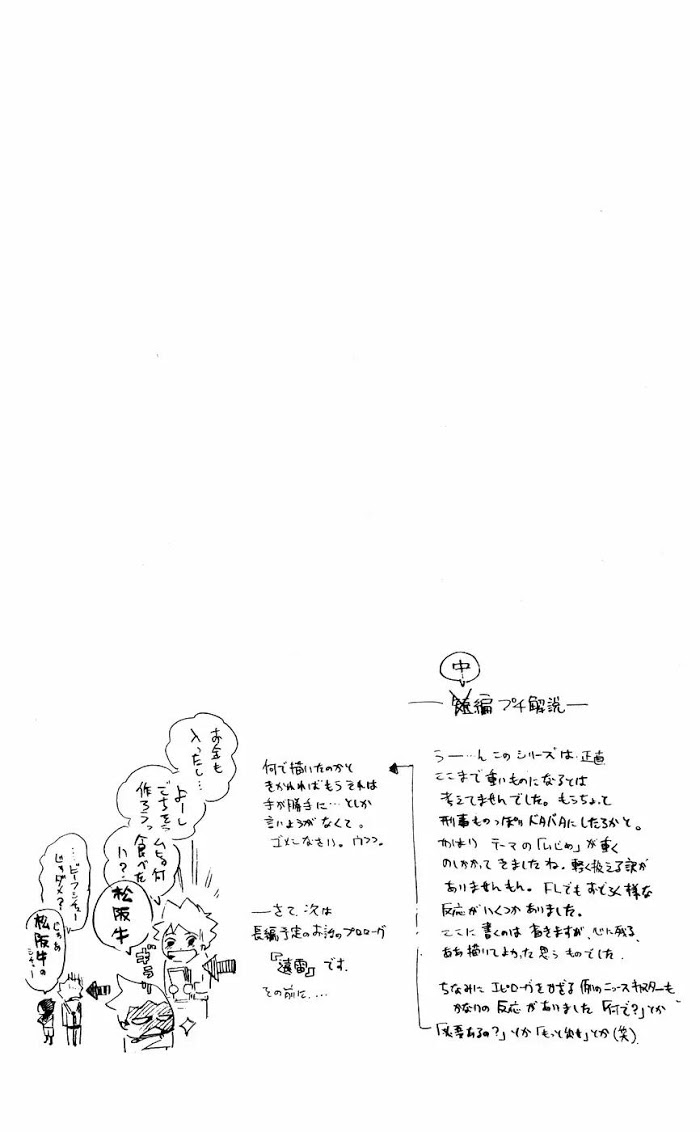 中
編 プチ解説
うー…ん このシリーズは 正直
ここまで重いものになるとは
考えてませんでした。もうちょっと
刑事ものっぽい ドカバカにしたろかと。
やはり テーマの「いじめ」が重く
のしかかって きましたね。軽く扱える訳が
ありませんもん。FLでも 様々な
反応がいくつか ありました。
ここに書くのは 省きますが 心に残る、
ああ描いてよかった 思う ものでした。
ちなみに エピローグを かざる 例のニュースキャスターも
かなりの反応 がありました 「何で?」とか
「必要あるの?」とか 「もっと出せ」とか(笑)
何で描いたのかと
きかれれば もう それは
手が勝手に…としか
言いようが なくて。
ゴメンなさい。ウフフ。
—さて、次は
長編予定のお話のプロローグ
『遠雷』です。
その前に…
お金も
入ったし…
よーし
ごちそう
作ろうっ
ムヒョ。何
食べた
い?
松阪牛
ギラッ
…ビーフシチュー
じゃダメ?
じゃあ
松阪牛の
シチュー